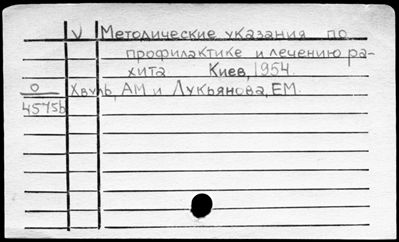 V Методические указания по
профилактике и лечению ра-
хита Киев, 1954.
О Хвуль, АМ и Лукьянова, ЕМ.
45756